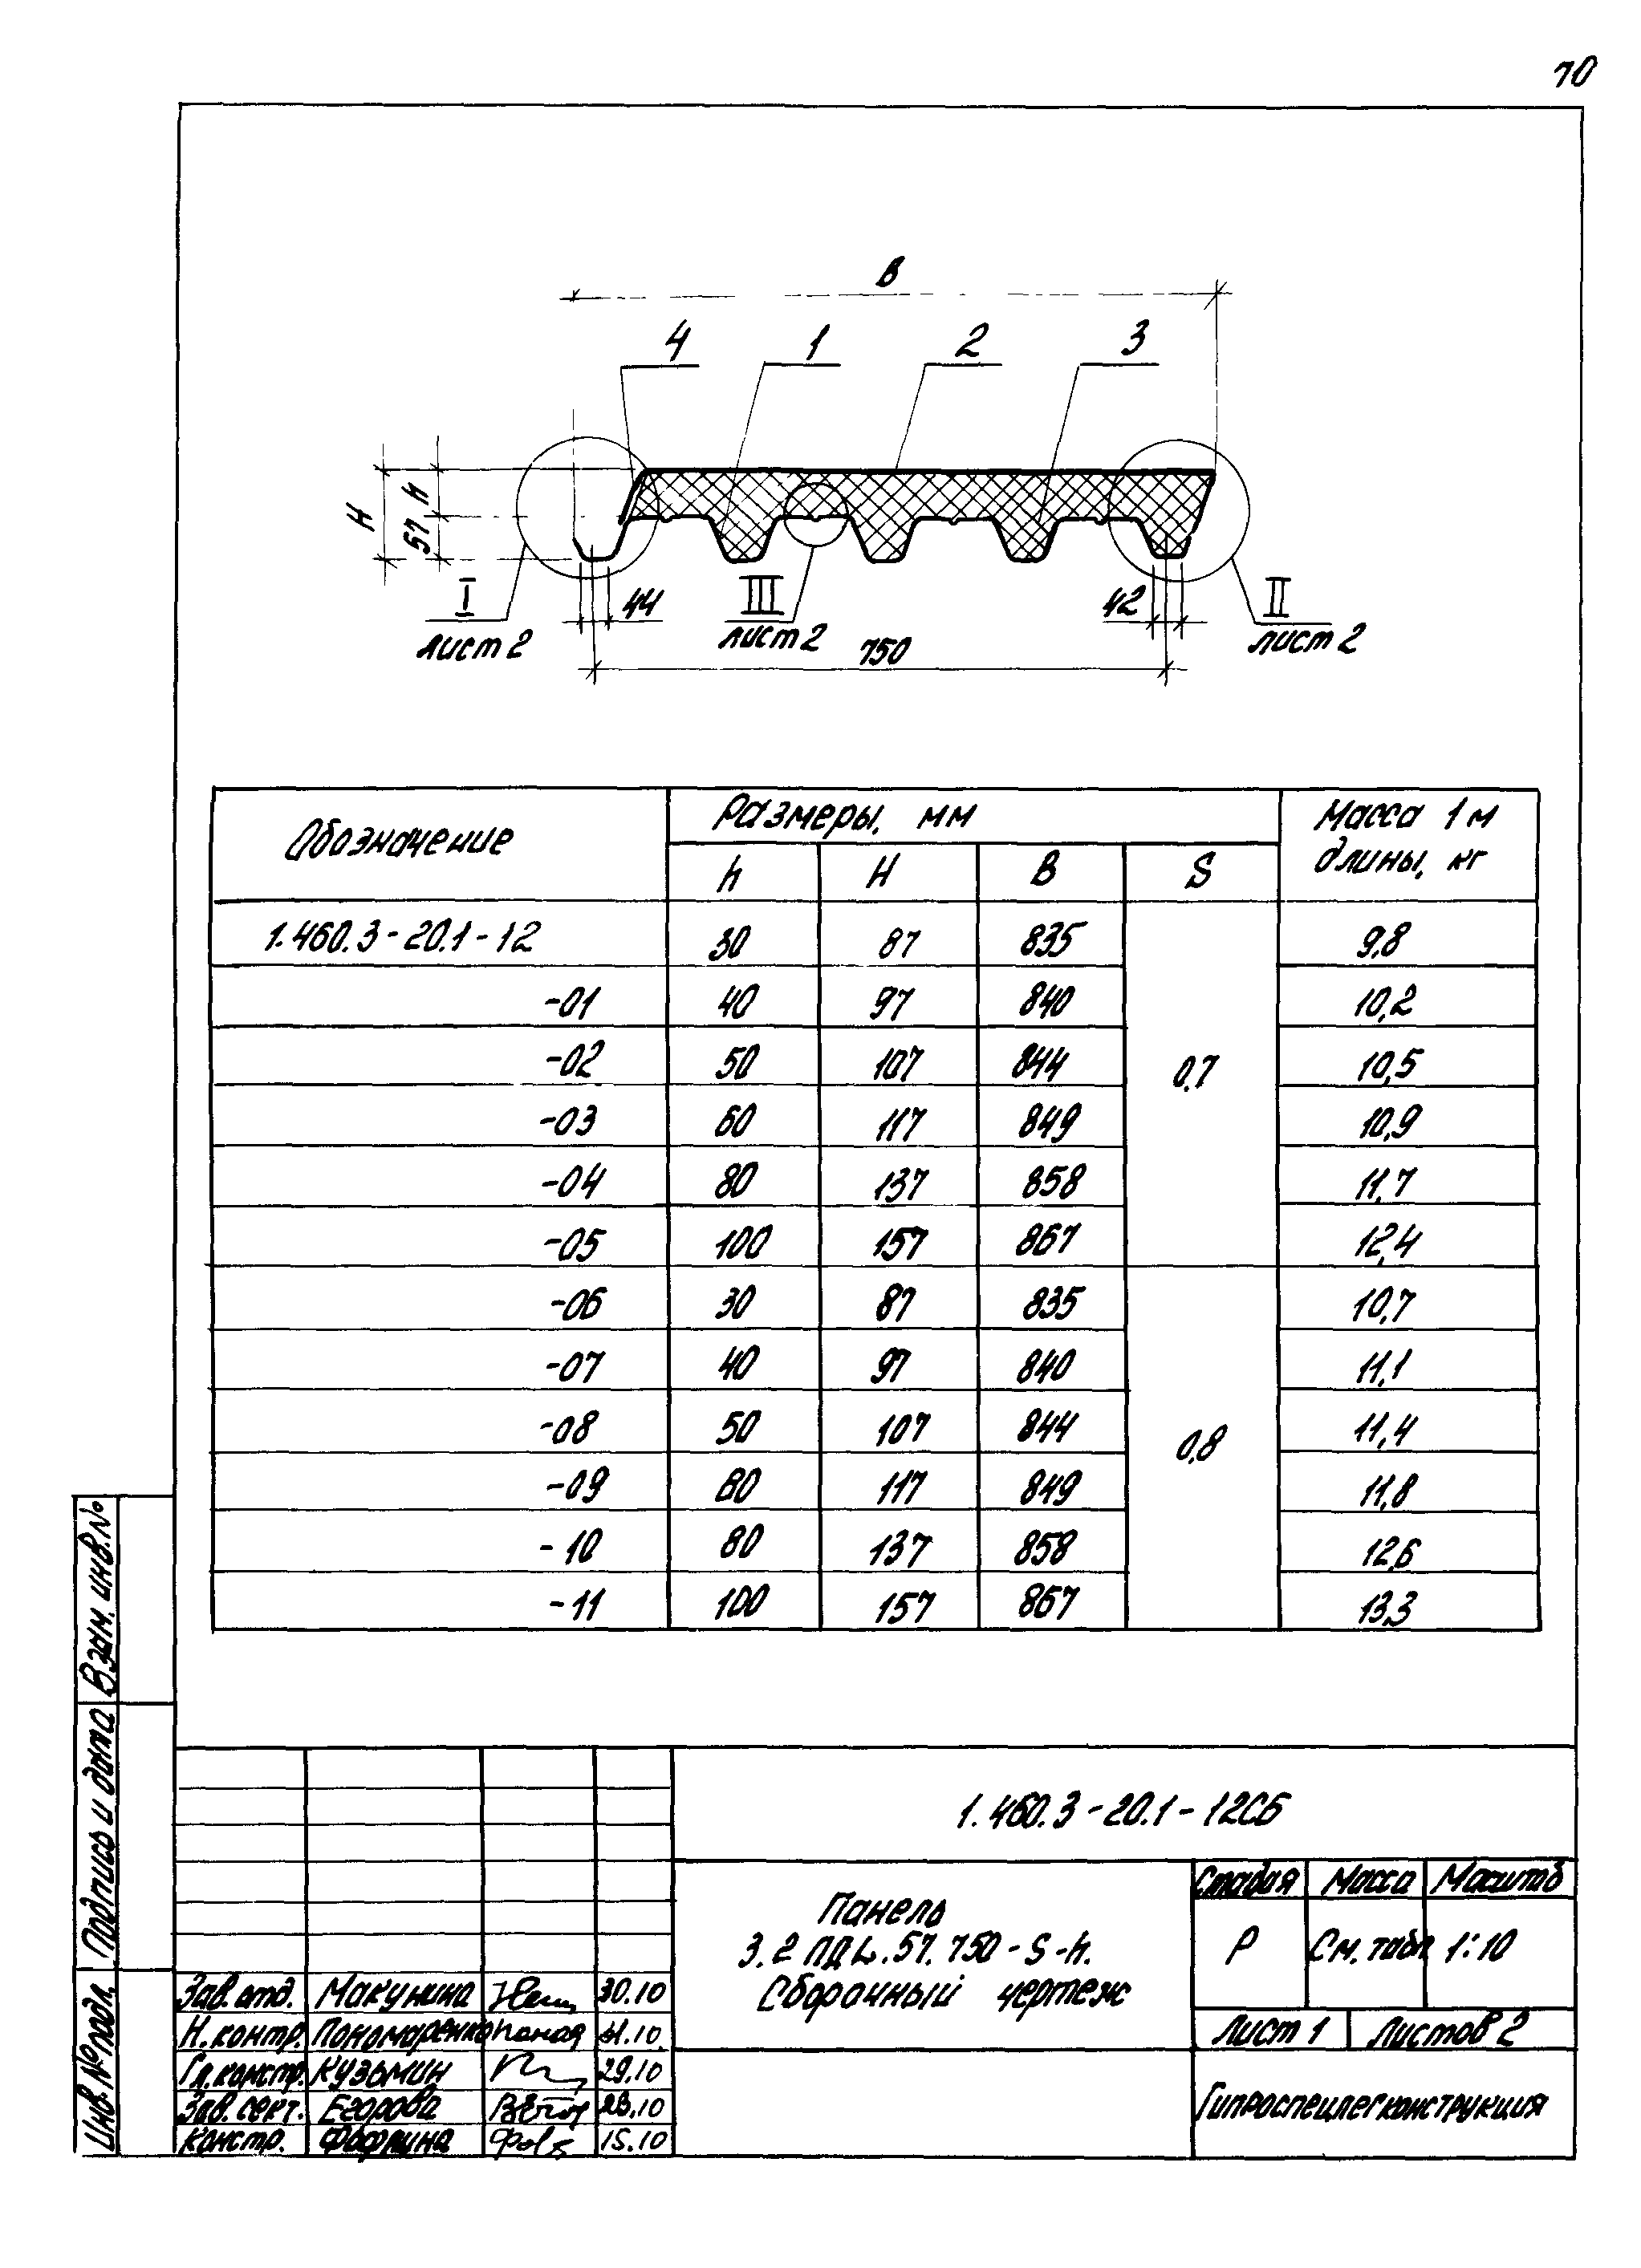 70
В
4 1 2 3
H
h
57
I
лист 2
44
III
лист 2
42
II
лист 2
750
Обозначение Размеры, мм Масса 1 м длины, кг
h H B S
1.460.3-20.1-12 30 87 835 0,7 9,8
-01 40 97 840 10,2
-02 50 107 844 10,5
-03 60 117 849 10,9
-04 80 137 858 11,7
-05 100 157 867 12,4
-06 30 87 835 0,8 10,7
-07 40 97 840 11,1
-08 50 107 844 11,4
-09 60 117 849 11,8
-10 80 137 858 12,6
-11 100 157 867 13,3
Взам. инв. №
Подпись и дата
Инв. № подл.
1.460.3-20.1-12СБ
Панель
3.2 ПДL.57.750-S-h.
Сборочный чертеж
Стадия Масса Масштаб
Р См. табл 1:10
Лист 1 Листов 2
Гипроспецлегконструкция
Зав. отд. Макунина 30.10
Н. контр. Пономаренко 31.10.
Гл. констр. Кузьмин 29.10
Зав. сект. Егорова 23.10
Констр. 15.10